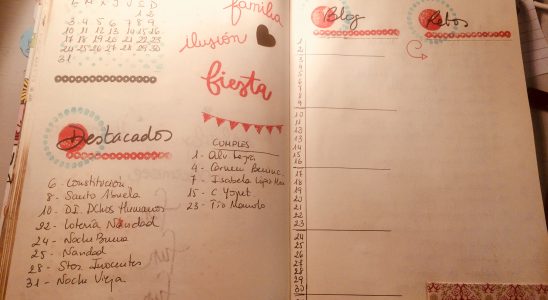 L M X J V S D
1 2
3 4 5 6 7 8 9
10 11 12 13 14 15 16
17 18 19 20 21 22 23
24 25 26 27 28 29 30
31
familia
ilusión
fiesta
Destacados
6 - Constitución
8 - Santo Abuela
10 - D.I. DChos Humanos
22 - Lotería Navidad
24 - Noche Buena
25 - Navidad
28 - Stos Inocentes
31 - Noche Vieja
CUMPLES
1 -
4 - Carmen
7 - Isabela
15 - C
23 - Tío Manolo
Blog
Retos
1
2
3
4
5
6
7
8
9
10
11
12
13
14
15
16
17
18
19
20
21
22
23
24
25
26
27
28
29
30